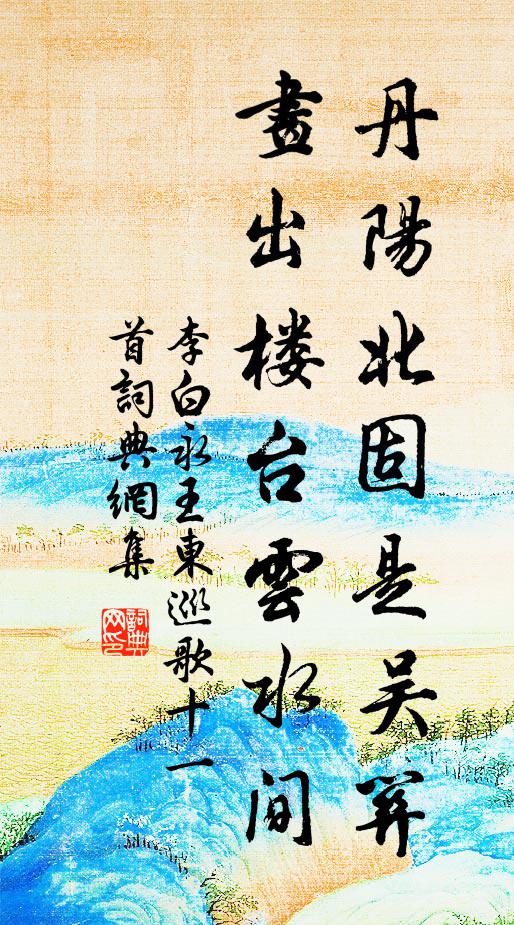 丹陽北固是吴關
畫出楼台雲水间
李白永王東巡歌十一
首詞典網集
詞典
网印